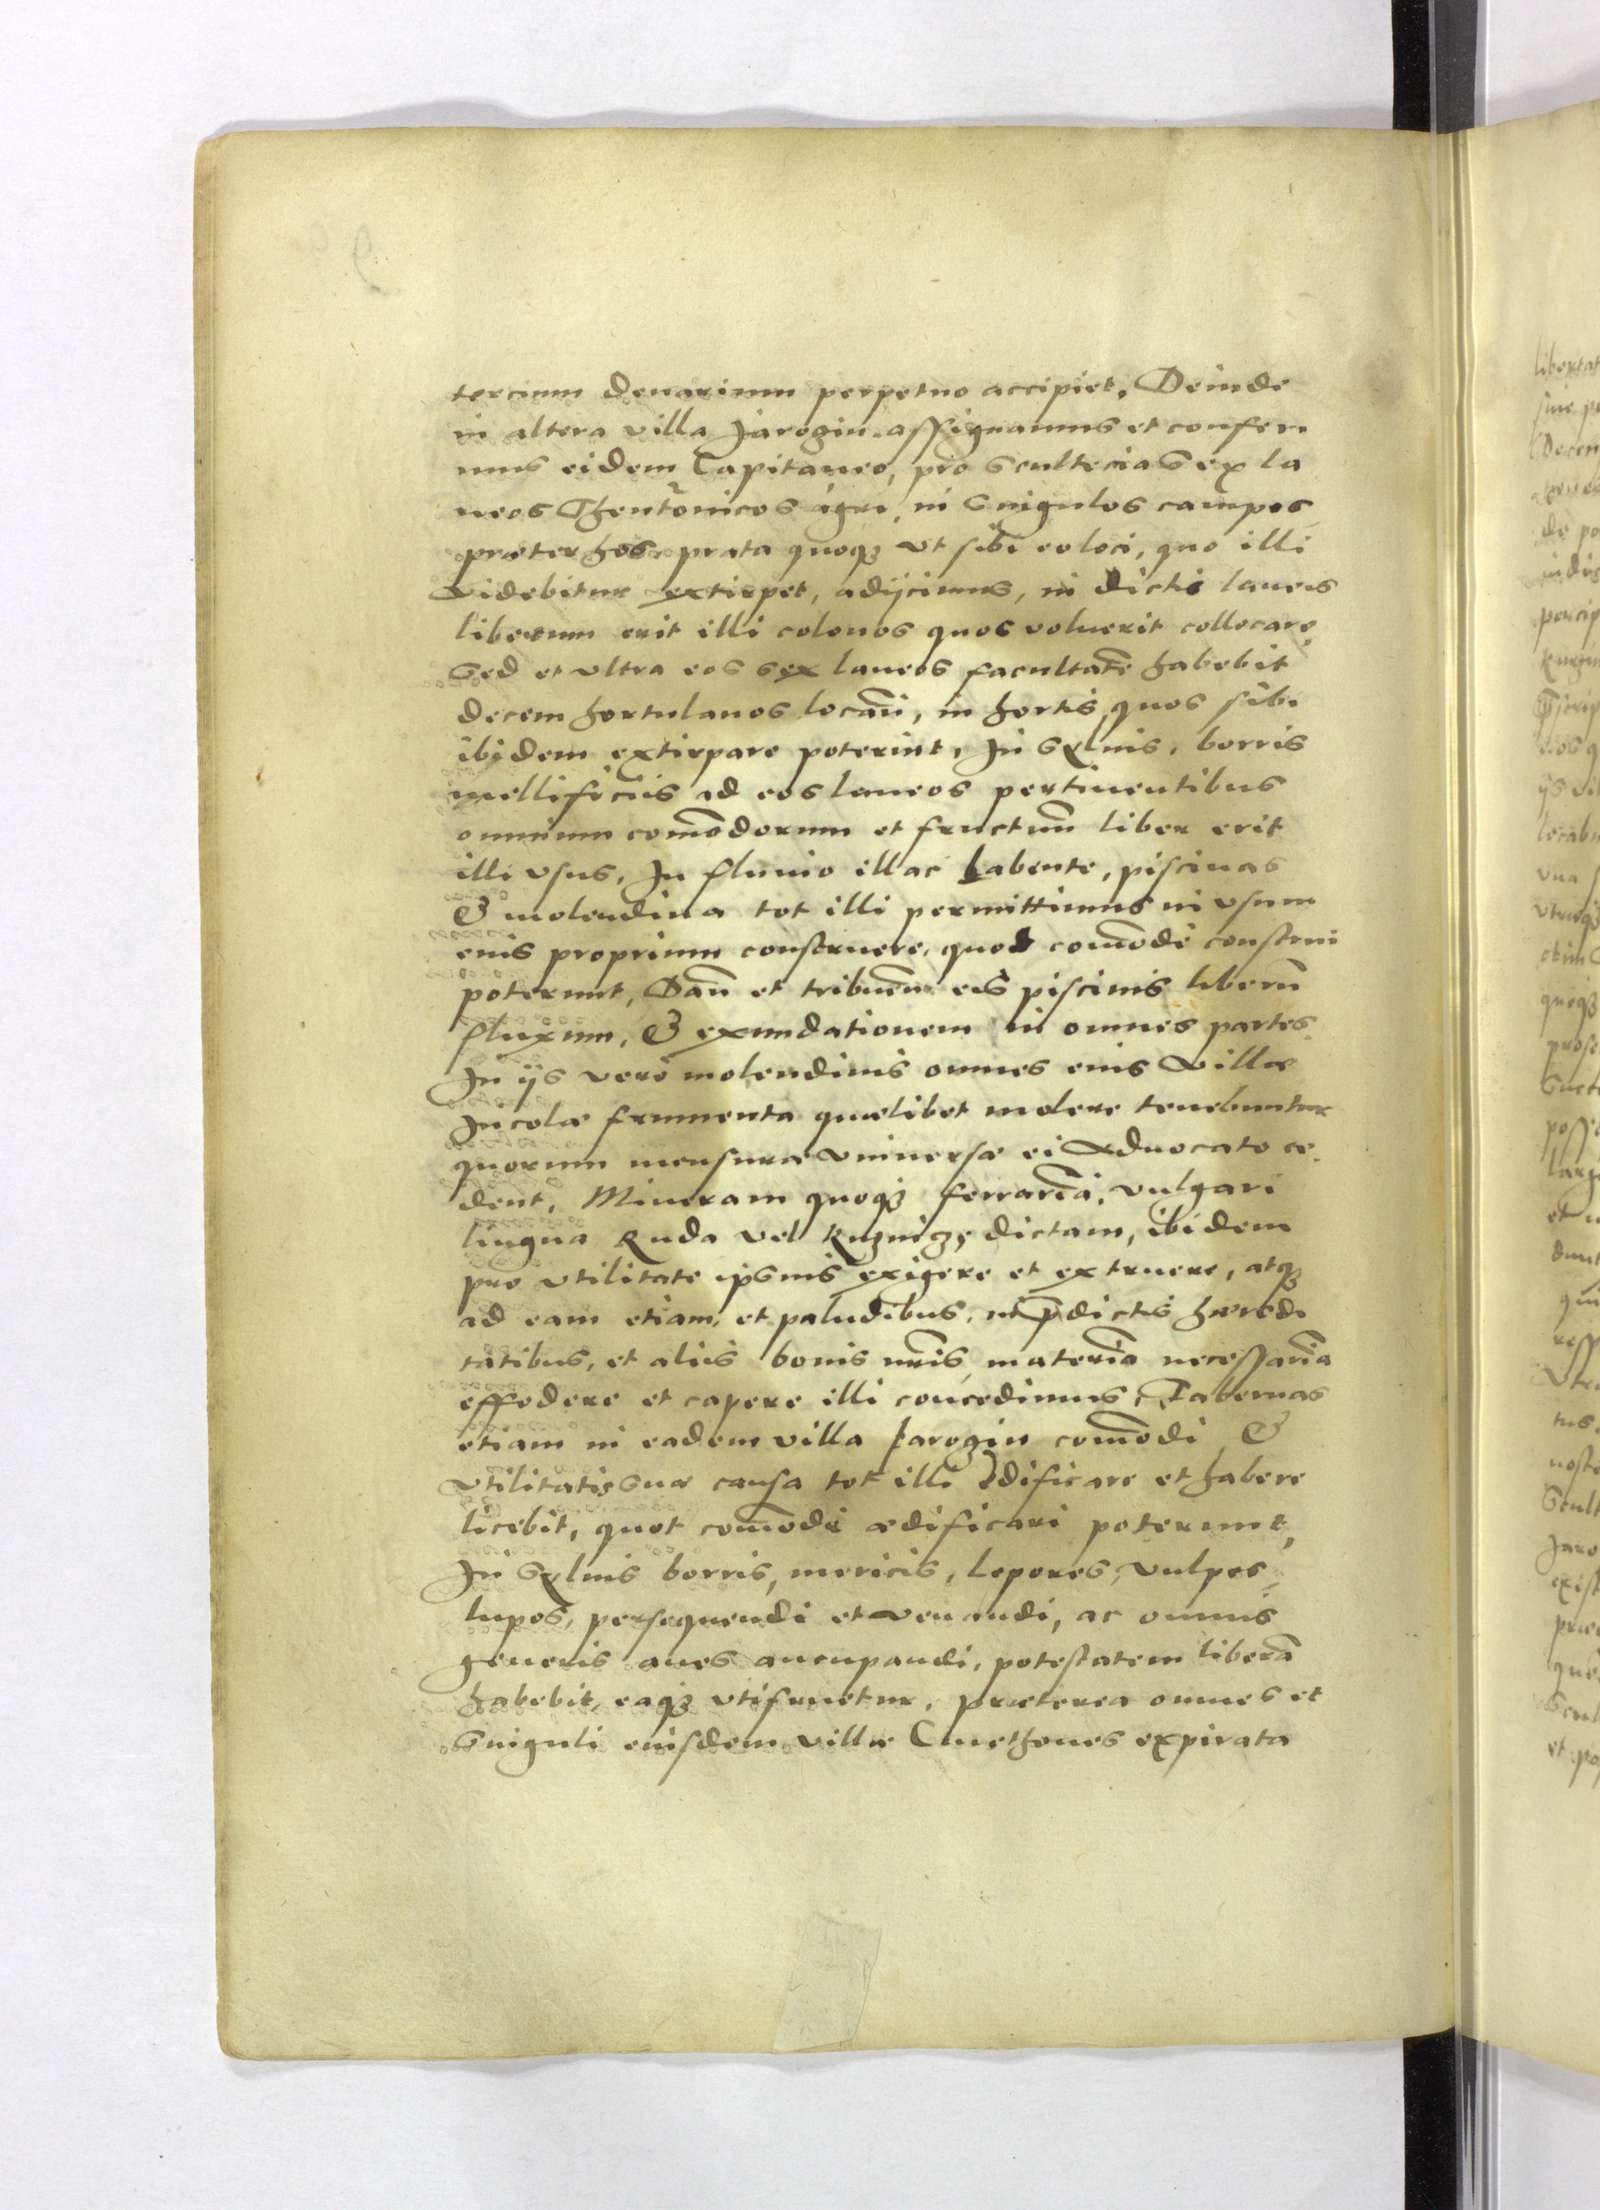 tercium denarium perpetuo accipiet, Deinde
in altera villa Jarogin assignamus et conferi
mus eidem Capitaneo, pro Scultecia Sex la
neos Theutonicos agri, in Singulos campos
præter hos prata quoqȝ vt sibi eo loci, quo illi
videbitur extirpet, adijcimus, in dictis laneis
liberum erit illi colonos quos voluerit collocare,
Sed et vltra eos sex laneos facultatē habebit
decem hortulanos locan̄i, in hortis quos sibi
ibidem extirpare poterint, In Sÿluis, borris
mellificiis ad eos laneos pertinentibus
omnium com̄odorum et fructuū liber erit
illi vsus, In fluuio illac labente, piscinas
& molendina tot illi permittimus in vsum
eius proprium construere, quot com̄ode construi
poterunt, Dan̄ et tribuen̄ eis piscinis liberū
fluxum, & exundationem in omnes partes.
In ijs vero molendinis omnes eius villæ
Incolæ frumenta quælibet molere tenebuntur
quorum mensuræ vniuersæ ei Aduocato ce
dent, Mineram quoqȝ ferrariā, vulgari
lingua Ruda vel Kuznicze dictam, ibidem
pro vtilitate ipsius exigere et extruere, atqȝ
ad eam etiam, et paludibus, in p̄dictis hæredi
tatibus, et aliis bonis nr̄is, materiā necessariā
effodere et capere illi concedimus, Tabernas
etiam in eadem villa Jarogin com̄odi, &
vtilitatis suæ causa tot illi ædificare et habere
licebit, quot com̄ode ædificari poterunt,
In Sÿluis borris, mericis, lepores, vulpes,
lupos, persequendi et venandi, ac omnis
generis aues aucupandi, potestatem liberā
habebit, eaqȝ vtifruetur, præterea omnes et
Singuli eiusdem villæ Cmethones expirata